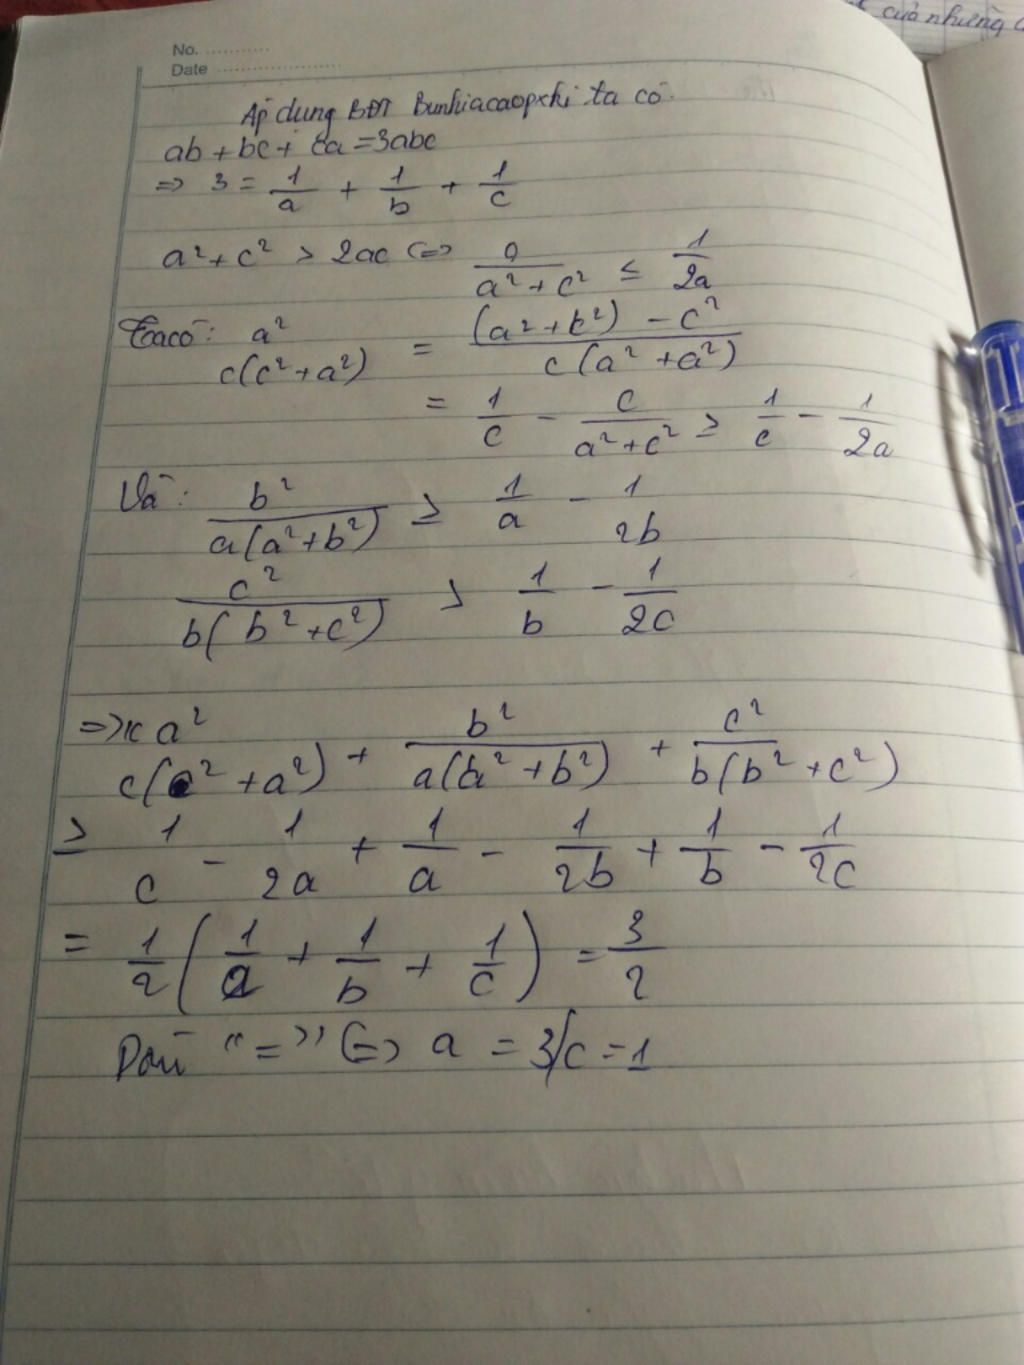 của những
No. ............
Date ......................
Áp dụng BĐT Bunhiacaopxki ta có.
ab + bc + ca = 3abc
=> 3 = 1/a + 1/b + 1/c
a² + c² > 2ac <=> a/(a² + c²) ≤ 1/2a
Ta có: a²/c(c² + a²) = ((a² + c²) - c²)/c(a² + a²)
= 1/c - c/(a² + c²) ≥ 1/c - 1/2a
Và: b²/a(a² + b²) ≥ 1/a - 1/2b
c²/b(b² + c²) > 1/b - 1/2c
=> a²/c(c² + a²) + b²/a(a² + b²) + c²/b(b² + c²)
≥ 1/c - 1/2a + 1/a - 1/2b + 1/b - 1/2c
= 1/2 (1/a + 1/b + 1/c) = 3/2
Dấu "=" <=> a = b = c = 1